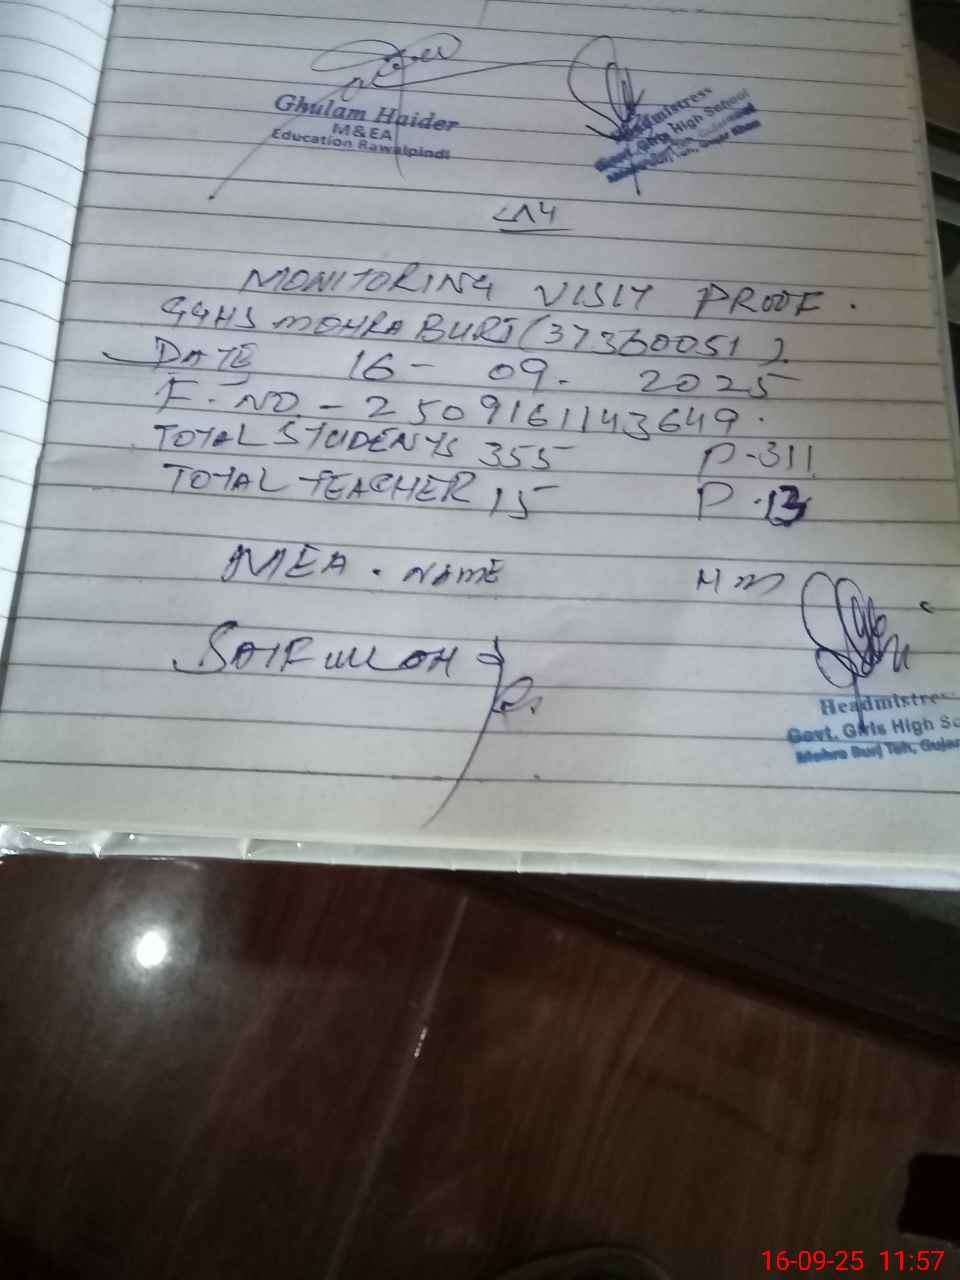 Ghulam Haider
M&EA
Education Rawalpindi
Headmistress
Govt. Girls High School
Mohra Burj Teh, Gujar Khan
MONITORING VISIT PROOF.
GGHS MOHRA BURJ (37360051)
DATE 16-09-2025
F.NO-2509161143649.
TOTAL STUDENTS 355 P-311
TOTAL TEACHER 15 P.13
MEA. NAME HM
SAIF ULLAH
Headmistres
Govt. Girls High Sc
Mohra Burj Teh, Gujar
16-09-25 11:57